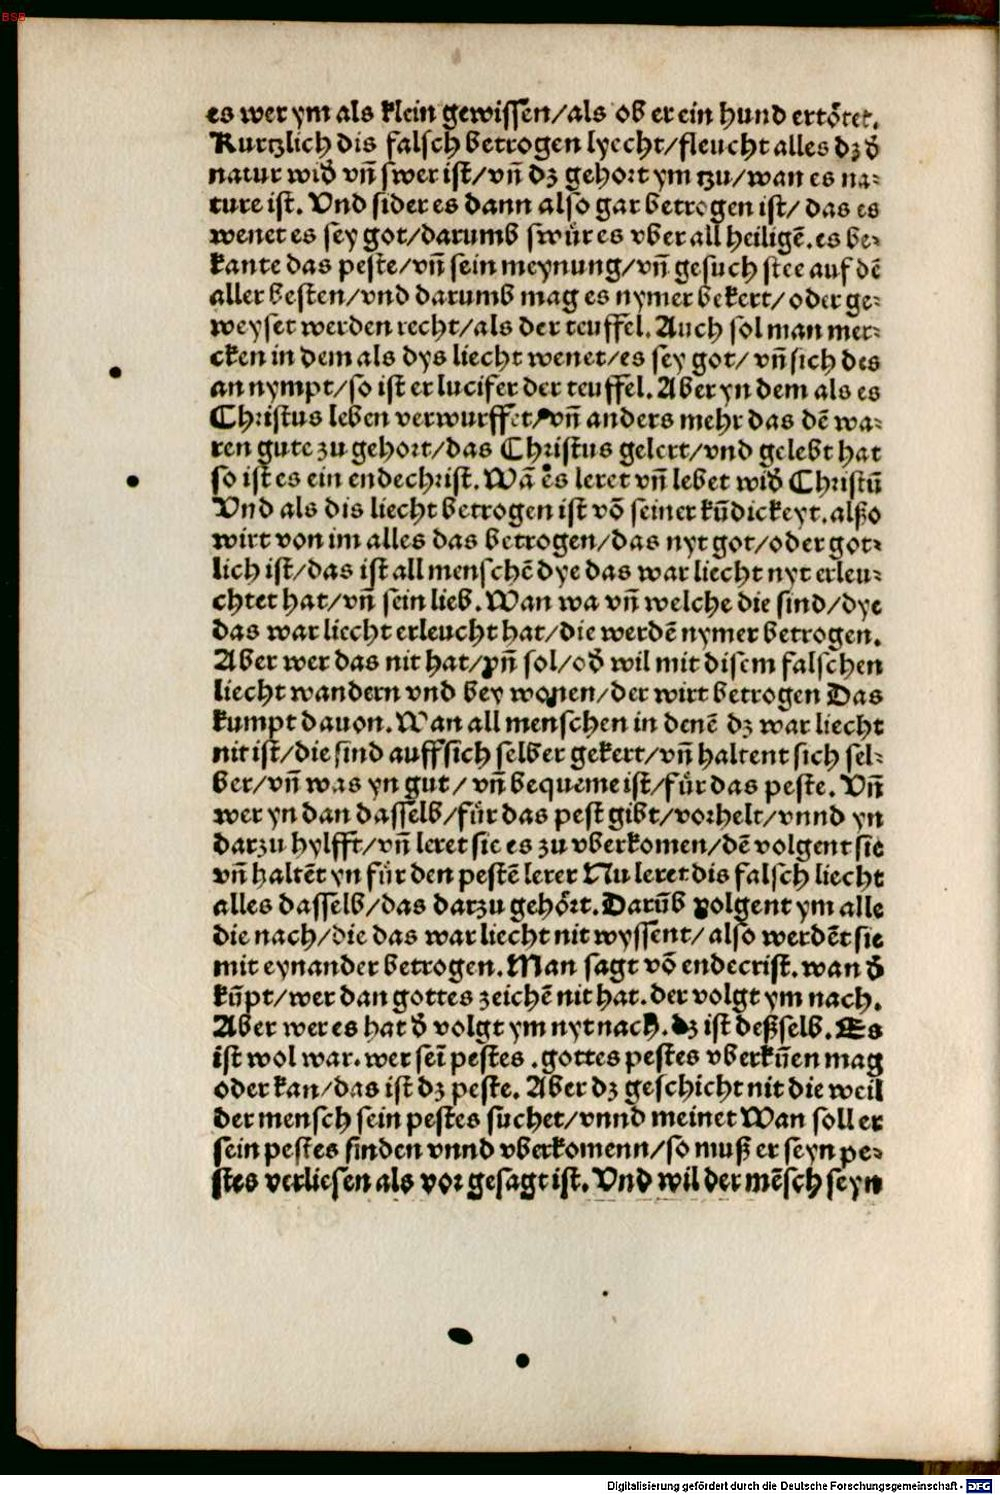 BSB
es wer ym als klein gewissen/als ob er ein hund ertötet.
Kurtzlich dis falsch betrogen lyecht/fleucht alles dz d̄
natur wid̄ vn̄ swer ist/vn̄ dz gehort ym tzu/wan es na⸗
ture ist. Vnd sider es dann also gar betrogen ist/ das es
wenet es sey got/darumb swür es vber all heiligē.es be⸗
kante das peste/vn̄ sein meynung/vn̄ gesuch stee auf dē
aller besten/vnd darumb mag es nymer bekert/oder ge⸗
weyset werden recht/als der teuffel. Auch sol man mer⸗
cken in dem als dys liecht wenet/es sey got/ vn̄ sich des
an nympt/so ist er lucifer der teuffel. Aber yn dem als es
Christus leben verwurffet/vn̄ anders mehr das dē wa⸗
ren gute zu gehort/das Christus gelert/vnd gelebt hat
so ist es ein endechrist. Wā es leret vn̄ lebet wid̄ Christū
Vnd als dis liecht betrogen ist vō seiner kūdickeyt.alßo
wirt von im alles das betrogen/das nyt got/oder got⸗
lich ist/das ist all menschē dye das war liecht nyt erleu⸗
chtet hat/vn̄ sein lieb. Wan wa vn̄ welche die sind/dye
das war liecht erleucht hat/die werdē nymer betrogen.
Aber wer das nit hat/vn̄ sol/od̄ wil mit disem falschen
liecht wandern vnd bey wonen/der wirt betrogen Das
kumpt dauon. Wan all menschen in denē dz war liecht
nit ist/die sind auff sich selber gekert/vn̄ haltent sich sel⸗
ber/vn̄ was yn gut/ vn̄ bequeme ist/für das peste. Vn̄
wer yn dan dasselb/für das pest gibt/vorhelt/vnnd yn
darzu hylfft/vn̄ leret sie es zu vberkomen/dē volgent sie
vn̄ haltēt yn für den pestē lerer Nu leret dis falsch liecht
alles dasselb/das darzu gehört. Darūb volgent ym alle
die nach/die das war liecht nit wyssent/ also werdēt sie
mit eynander betrogen. Man sagt vō endecrist. wan d̄
kūpt/wer dan gottes zeichē nit hat. der volgt ym nach.
Aber wer es hat d̄ volgt ym nyt nach. dz ist deßselb. Es
ist wol war. wer seī pestes .gottes pestes vberkūen mag
oder kan/das ist dz peste. Aber dz geschicht nit die weil
der mensch sein pestes suchet/vnnd meinet Wan soll er
sein pestes finden vnnd vberkomenn/so muß er seyn pe⸗
stes verliesen als vor gesagt ist. Vnd wil der mēsch seyn
Digitalisierung gefördert durch die Deutsche Forschungsgemeinschaft - DFG